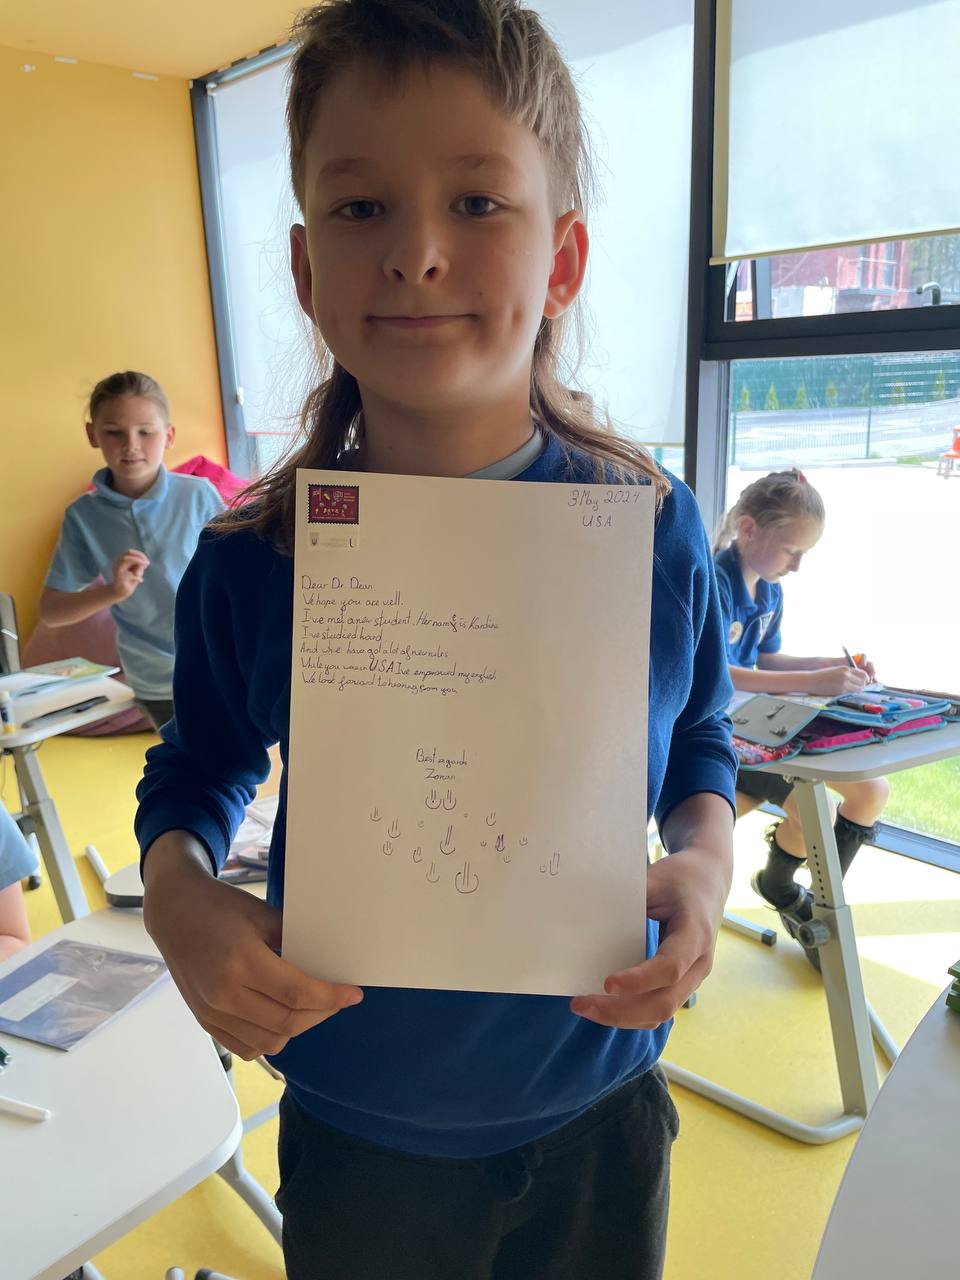 3 May 2024
USA
Dear Dr. Dean
We hope you are well.
I've met a new student. Her name is Karolina
I've studied hard
And we have got a lot of new rules
While you were in USA I've emproved my english
We look forward to hearing from you
Best regards
Zoman